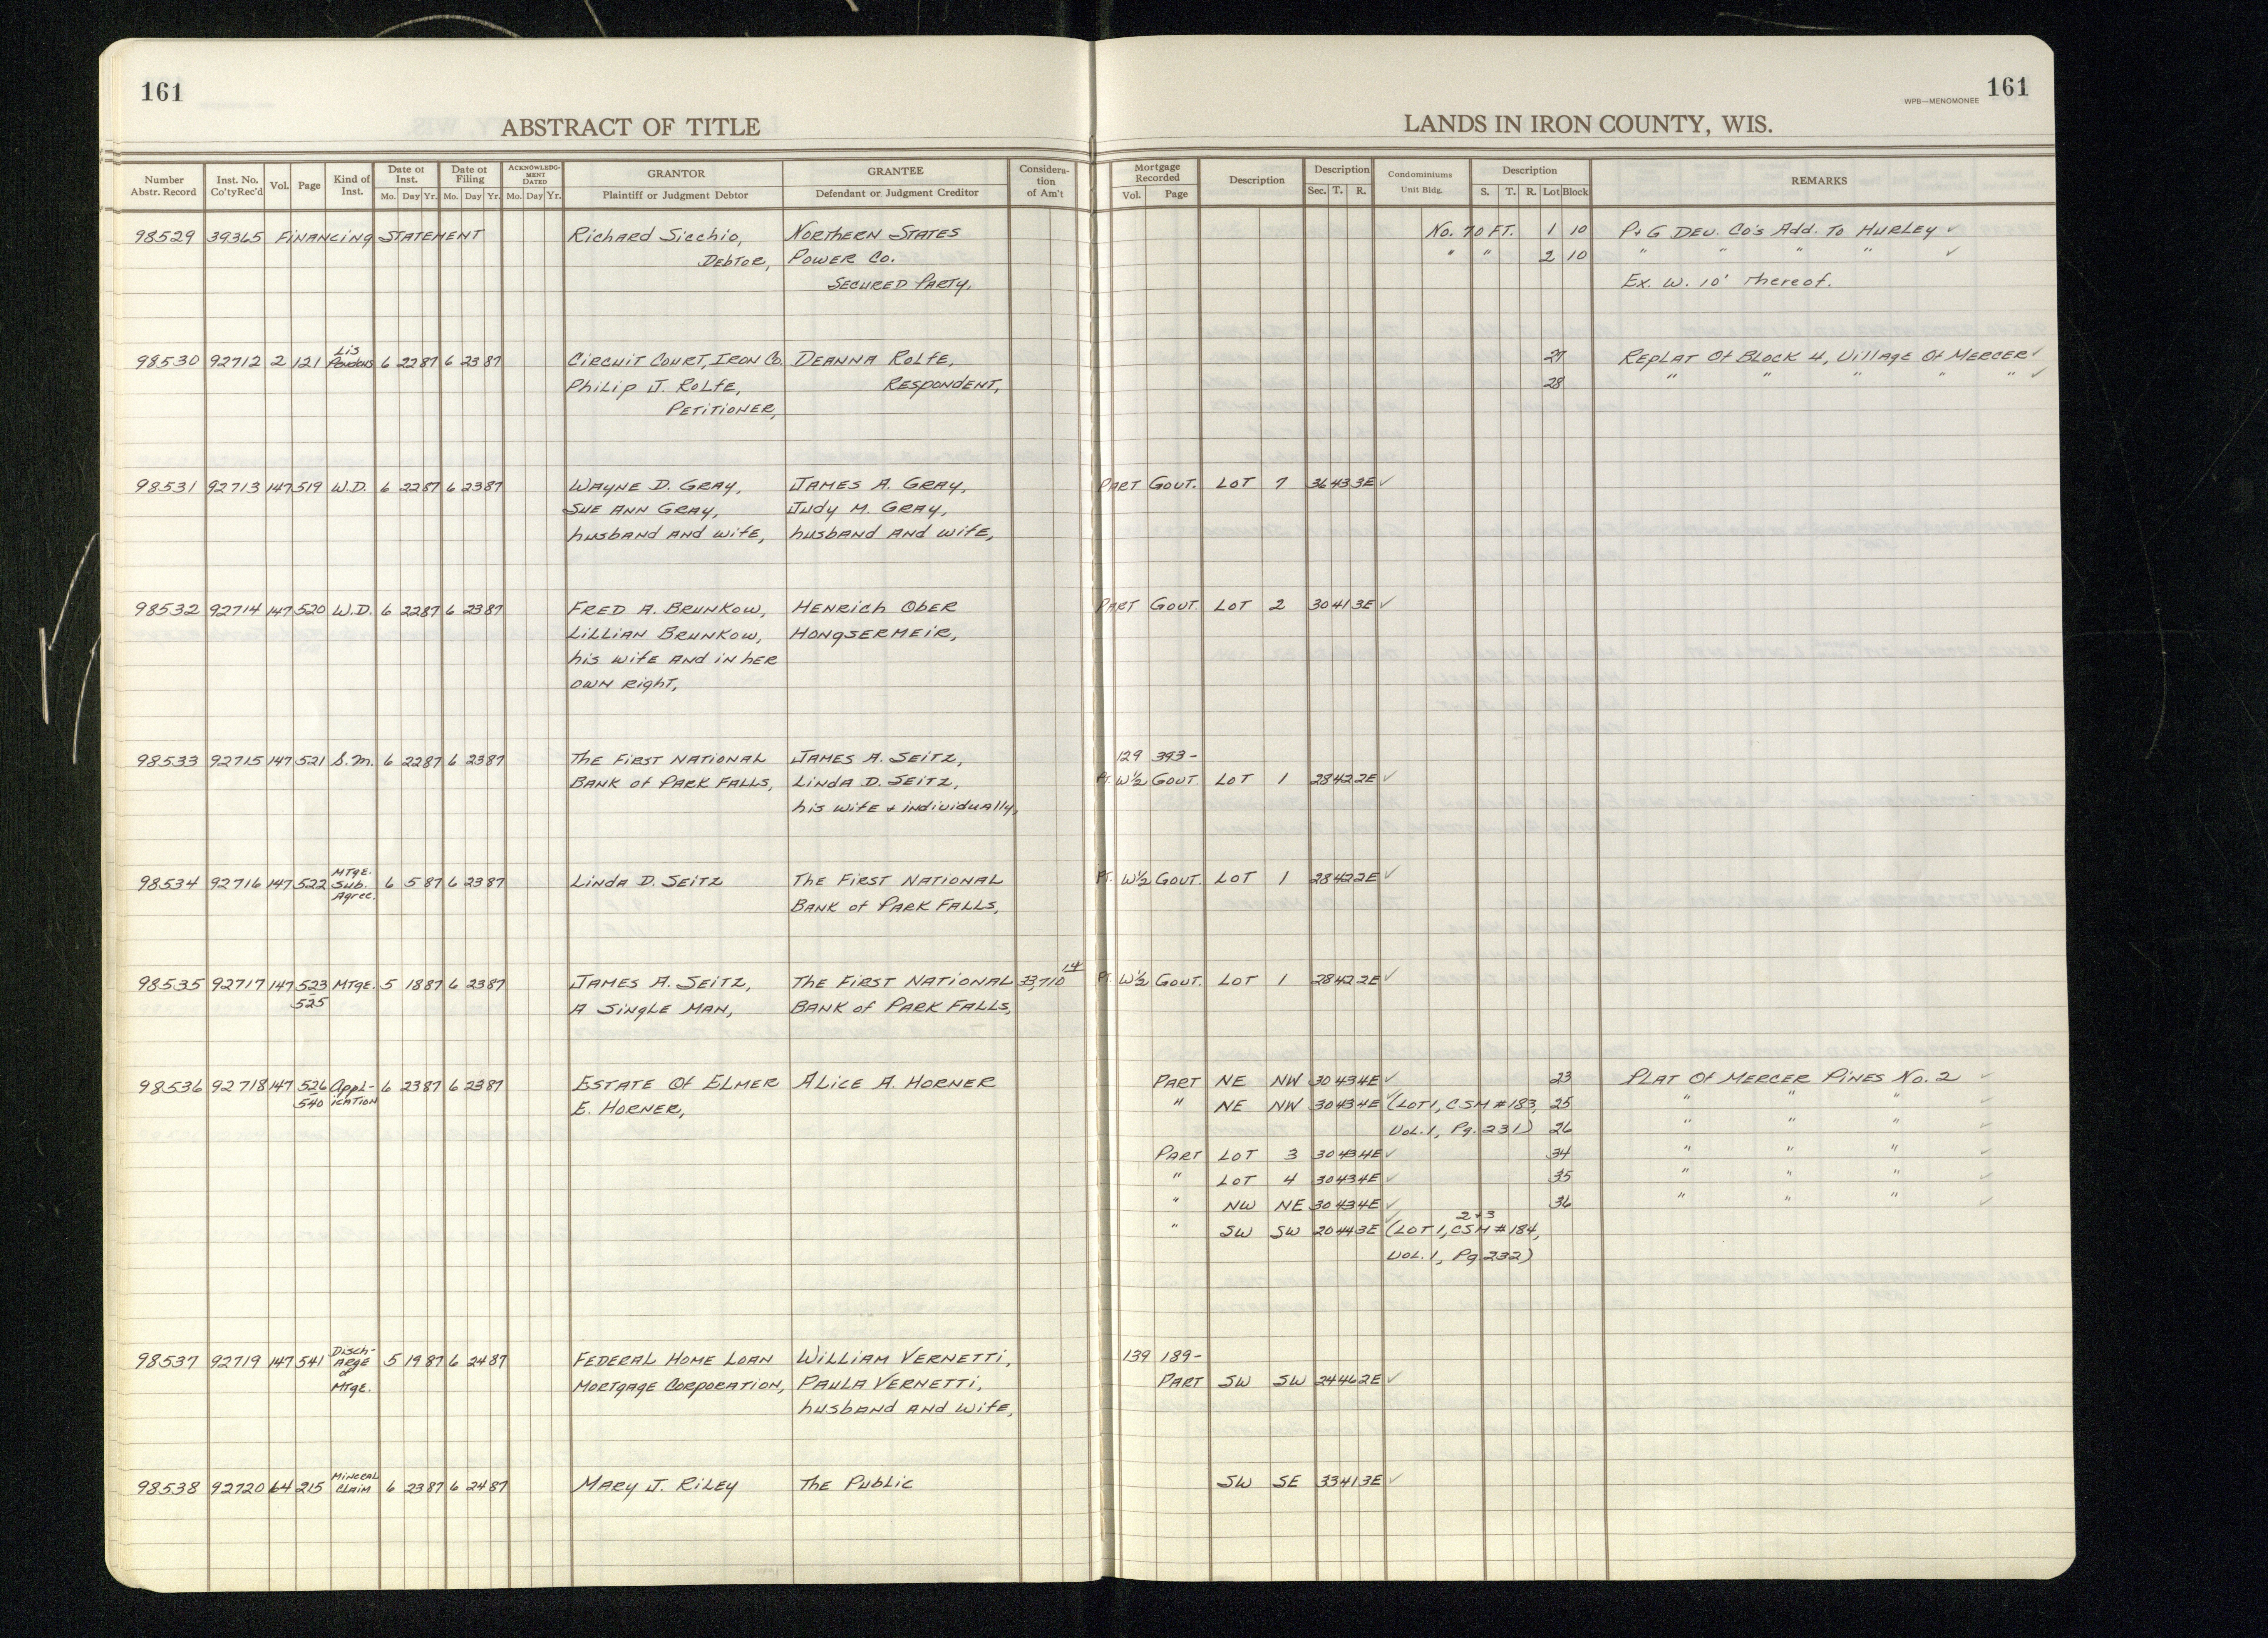 161
161
WPB—MENOMONEE
ABSTRACT OF TITLE
LANDS IN IRON COUNTY, WIS.
Number Abstr. Record | Inst. No. Co'ty Rec'd | Vol. | Page | Kind of Inst. | Date of Inst. Mo. Day Yr. | Date of Filing Mo. Day Yr. | ACKNOWLEDGMENT DATED Mo. Day Yr. | GRANTOR Plaintiff or Judgment Debtor | GRANTEE Defendant or Judgment Creditor | Consideration of Am't | Mortgage Recorded Vol. Page | Description | Description Sec. T. R. | Condominiums Unit Bldg. | Description S. T. R. Lot Block | REMARKS
98529 39365 Financing Statement Richard Sicchio, Northern States No. 70 FT. 1 10 P+G Dev. Co's Add. To Hurley ✓
Debtor, Power Co. " " 2 10 " " " " ✓
Secured Party, Ex. W. 10' Thereof.
98530 92712 2 121 Lis Pendens 6 22 87 6 23 87 Circuit Court, Iron Co. Deanna Rolfe, 27 Replat Of Block 4, Village Of Mercer ✓
Philip J. Rolfe, Respondent, 28 " " " " " ✓
Petitioner,
98531 92713 147 519 W.D. 6 22 87 6 23 87 Wayne D. Gray, James A. Gray, Part Gov't. Lot 7 36 43 3E ✓
Sue Ann Gray, Judy M. Gray,
husband and wife, husband and wife,
98532 92714 147 520 W.D. 6 22 87 6 23 87 Fred A. Brunkow, Henrich Ober Part Gov't. Lot 2 30 41 3E ✓
Lillian Brunkow, Hongsermeir,
his wife and in her
own right,
98533 92715 147 521 S.M. 6 22 87 6 23 87 The First National James A. Seitz, 129 393-
Bank of Park Falls, Linda D. Seitz, Pt. W½ Gov't. Lot 1 28 42 2E ✓
his wife + individually,
98534 92716 147 522 Mtge. Sub. Agree. 6 5 87 6 23 87 Linda D. Seitz The First National Pt. W½ Gov't. Lot 1 28 42 2E ✓
Bank of Park Falls,
98535 92717 147 523 Mtge. 5 18 87 6 23 87 James A. Seitz, The First National 33,710 14 Pt. W½ Gov't. Lot 1 28 42 2E ✓
525 A Single Man, Bank of Park Falls,
98536 92718 147 526 Appl- 6 23 87 6 23 87 Estate Of Elmer Alice A. Horner Part NE NW 30 43 4E ✓ 23 Plat Of Mercer Pines No. 2 ✓
540 ication E. Horner, " NE NW 30 43 4E ✓ (Lot 1, CSM #183, 25 " " " ✓
Vol. 1, Pg. 231) 26 " " " ✓
Part Lot 3 30 43 4E ✓ 34 " " " ✓
" Lot 4 30 43 4E ✓ 35 " " " ✓
" NW NE 30 43 4E ✓ 36 " " " ✓
2+3
" SW SW 20 44 3E ✓ (Lot 1, CSM #184,
Vol. 1, Pg 232)
98537 92719 147 541 Disch- 5 19 87 6 24 87 Federal Home Loan William Vernetti, 139 189-
arge of Mortgage Corporation, Paula Vernetti, Part SW SW 24 46 2E ✓
Mtge. husband and wife,
98538 92720 64 215 Mineral Claim 6 23 87 6 24 87 Mary J. Riley The Public SW SE 33 41 3E ✓